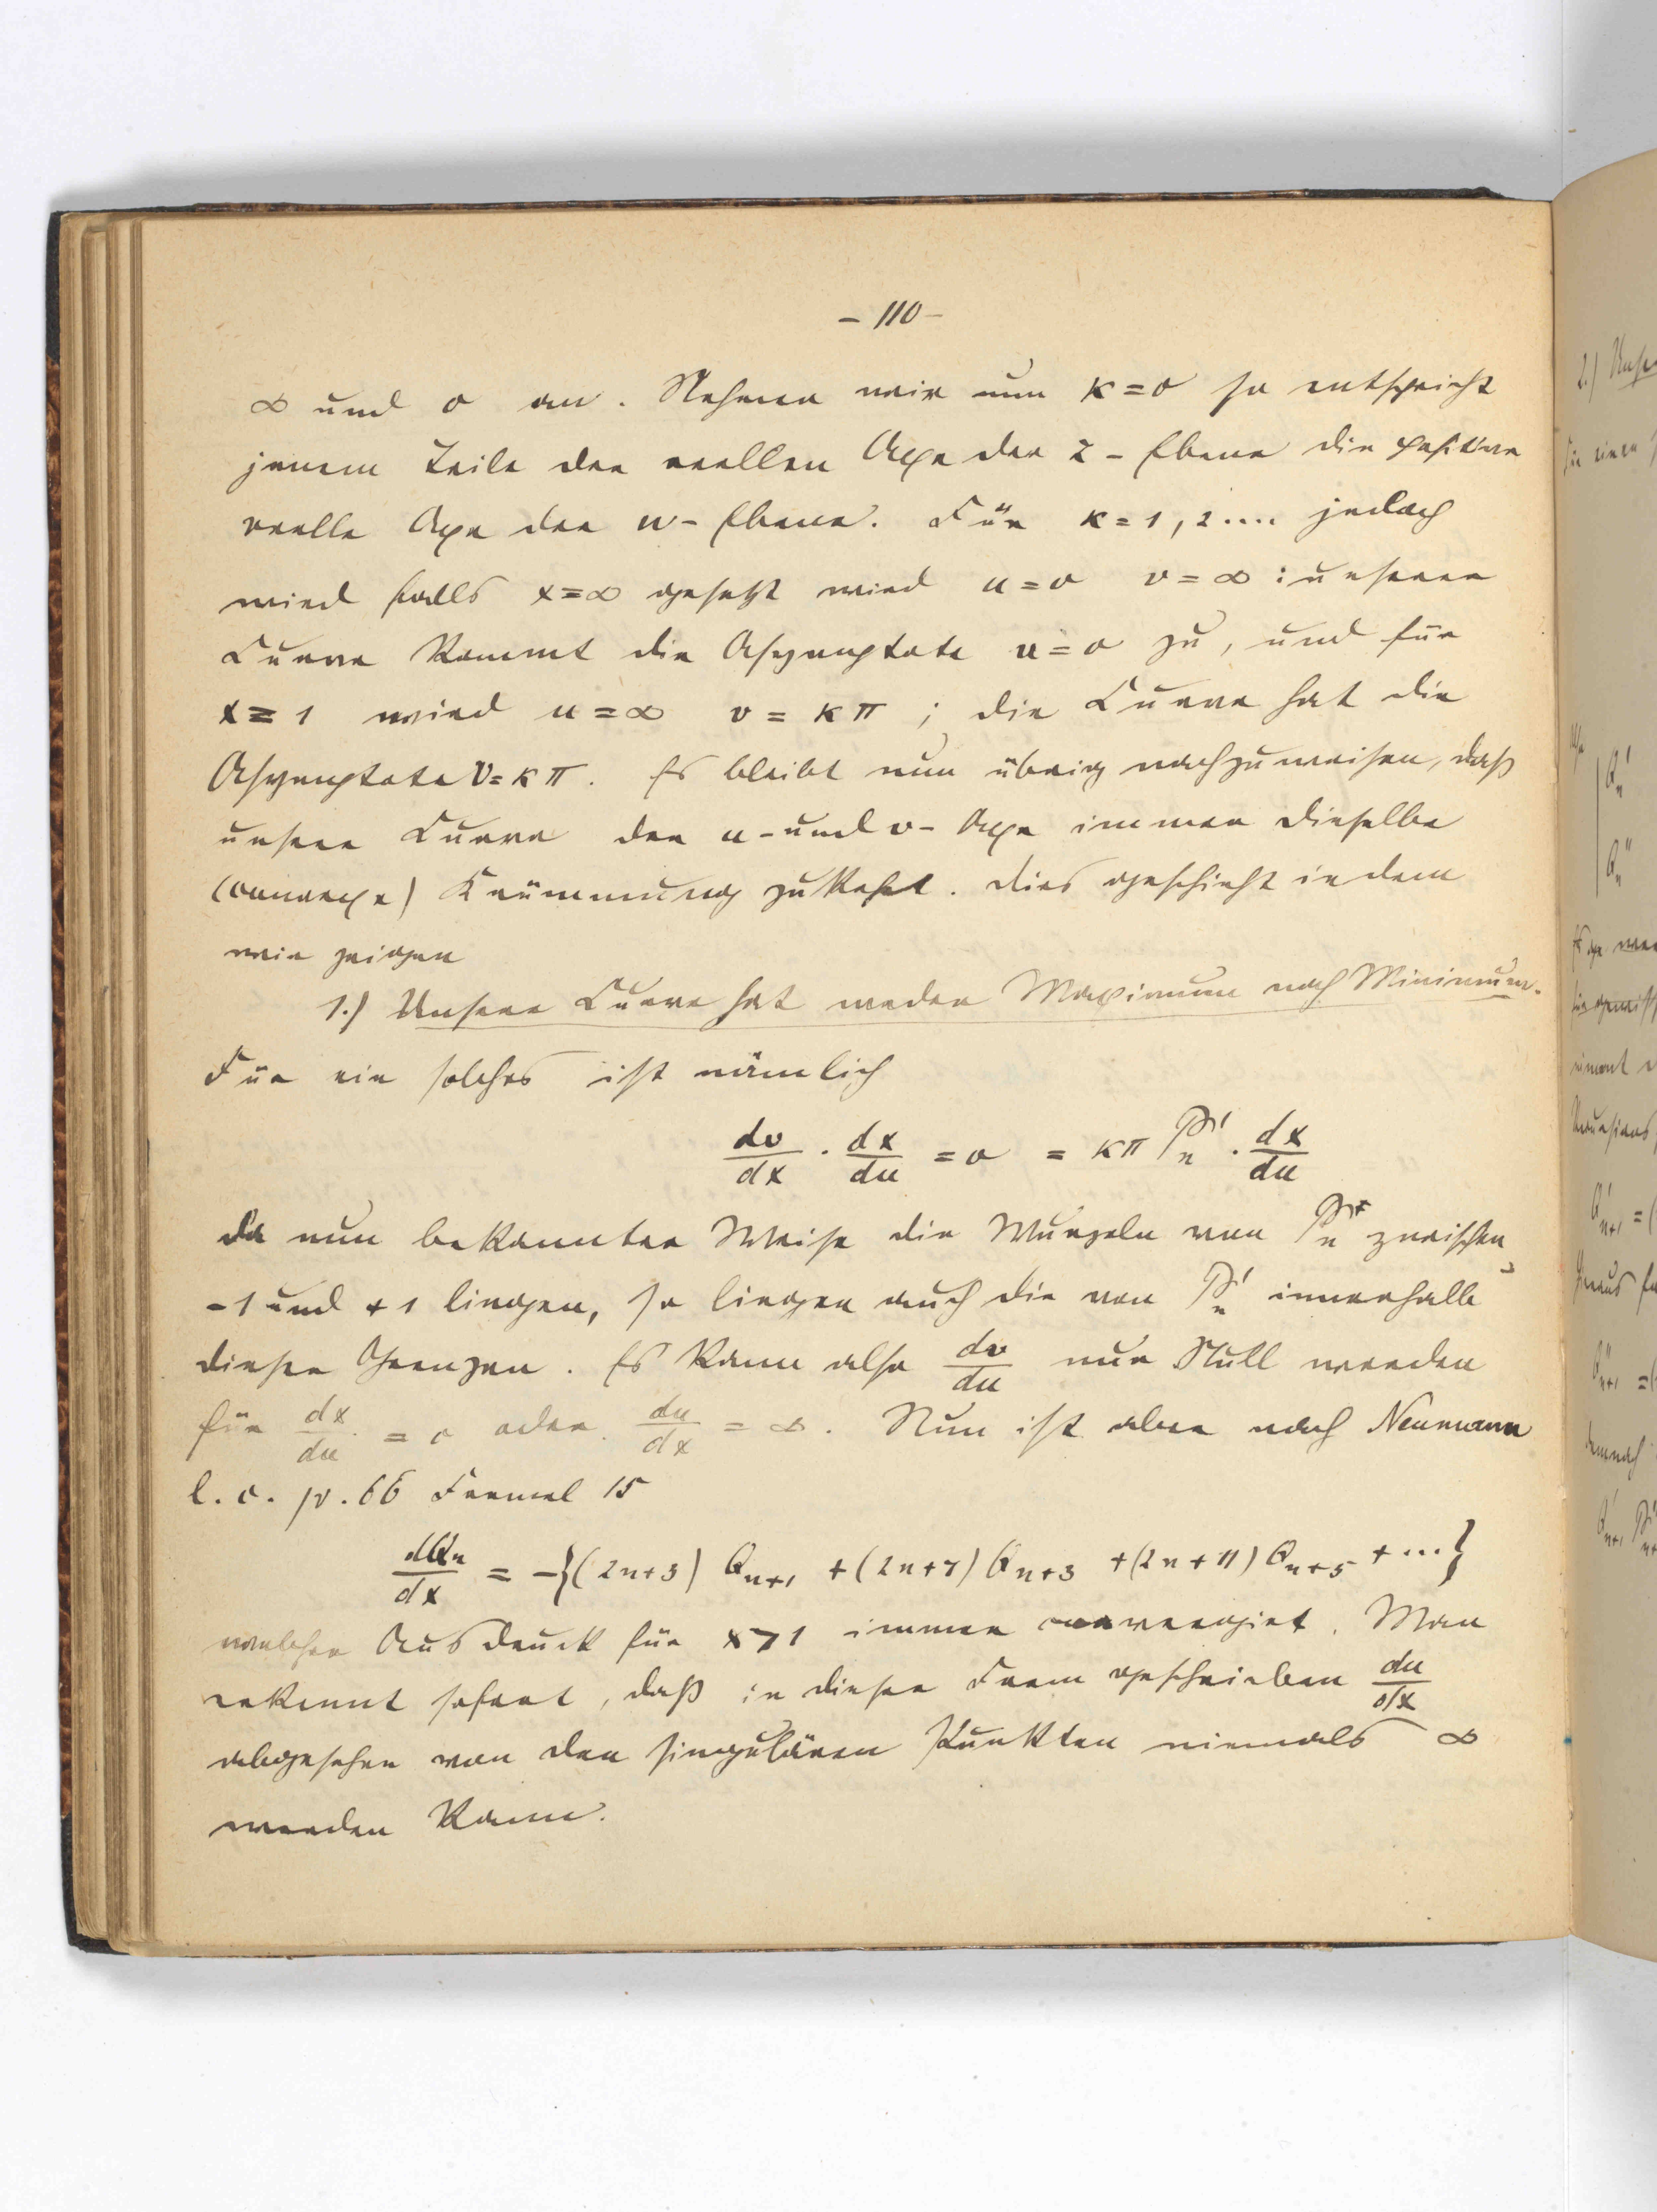 – 110 –
∞ und 0 an. Nehmen wir nun κ = 0 so entspricht
jenem Teile der reellen Axe der z - Ebene die positive
reelle Axe der w - Ebene. Für κ = 1, 2 .... jedoch
wird falls x = ∞ gesetzt wird u = 0 v = ∞ : unserer
Curve kommt die Asymptote u = 0 zu, und für
x = 1 wird u = ∞ v = κπ ; die Curve hat die
Asymptote v = κπ. Es bleibt nun übrig nachzuweisen, daß
unsere Curve der u - und v - Axe immer dieselbe
(convexe) Krümmung zukehrt. Dies geschieht indem
wir zeigen
1.) Unsere Curve hat weder Maximum noch Minimum.
Für ein solches ist nämlich
dv/dx · dx/du = 0 = κπ P'n · dx/du
Da nun bekannter Weise die Wurzeln von Pn zwischen
-1 und +1 liegen, so liegen auch die von P'n innerhalb
dieser Grenzen. Es kann also dv/du nur Null werden
für dx/du = 0 oder du/dx = ∞. Nun ist aber nach Neumann
l. c. p. 66 Formel 15
dQn/dx = -{(2n+3) Qn+1 + (2n+7) Qn+3 + (2n+11) Qn+5 + ...}
welcher Ausdruck für x>1 immer convergiet. Man
erkennt sofort, daß in dieser Form geschrieben du/dx
abgesehen von den singulären Punkten niemals ∞
werden kann.